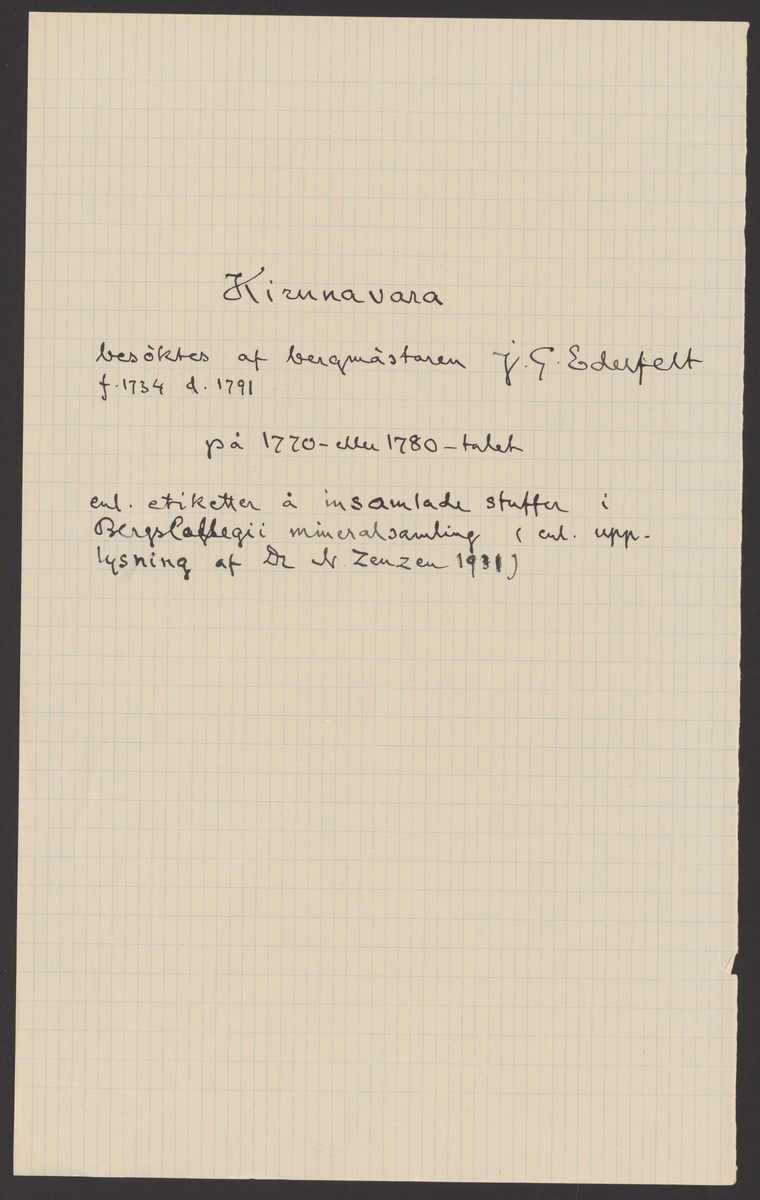 Kirunavara
besöktes af bergmästaren J. G. Ederfelt
f. 1734 d. 1791
på 1770- eller 1780-talet
enl. etiketter å insamlade stuffer i
BergsCollegii mineralsamling (enl. upp-
lysning af Dr N. Zenzen 1931)